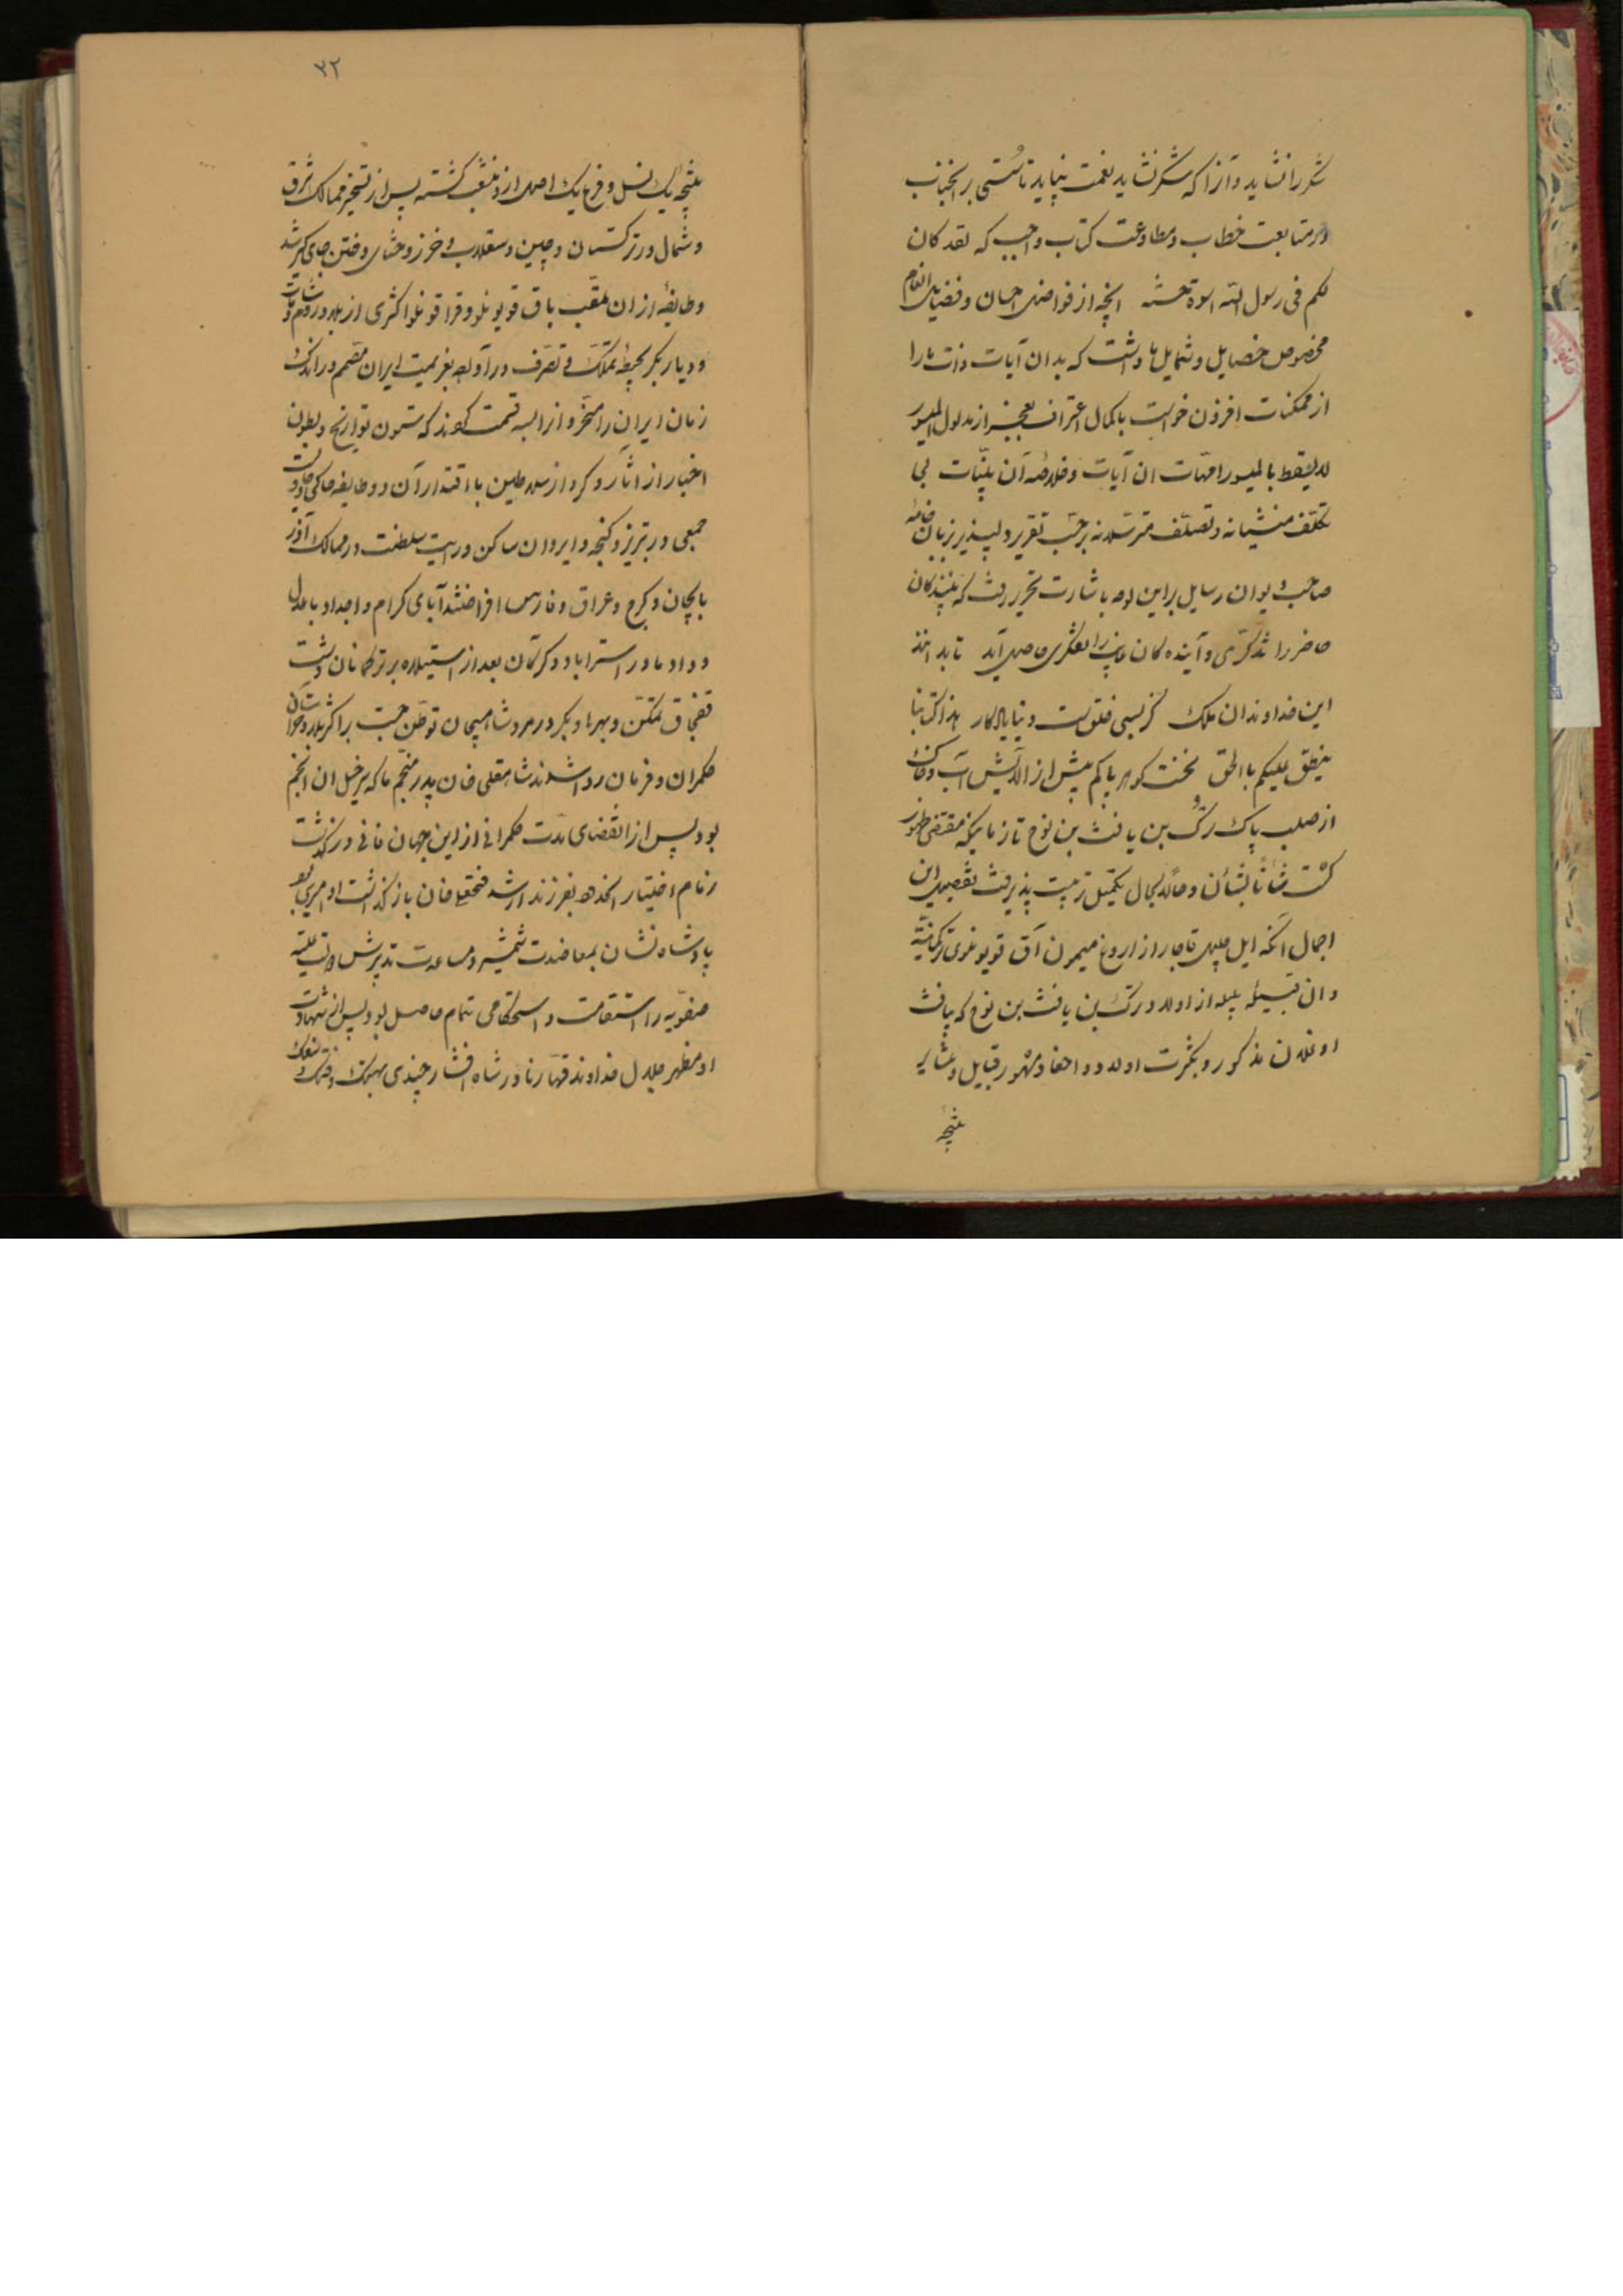 شکر را نشاید و آنرا که شکر نشاید نعمت نپاید تأسّی بر آنجناب
در متابعت خطاب و مطاوعت کتاب واجب که لقد کان
لکم فی رسول الله اسوة حسنة آنچه از فواضل احسان و فضایل انعام
مخصوص خصایل و شمایل ما داشت که بدان آیات ذات ما را
از ممکنات افزون خواست با کمال اعتراف بعجز از مدلول المیسور
لا یسقط بالمعسور امهات ان آیات و خلاصه آن بیّنات بی
تکلّف منشیانه و تصلّف مترسّلانه بر حسب تقریر دلپذیر بزبان خامه
صاحب دیوان رسایل براین لوحه باشارت تحریر رفت که بینندگان
حاضر را تذکّری و آینده کان غایب را تفکّری حاصل آید تا بداند
این خداوندان ملک کز بسی خلق است دنیا یادگار هذا کتابنا
ینطق علیکم بالحق نخست گوهر پاکم پیش از الایش آب و خاک
از صلب پاک ترک بن یافث بن نوح تا زمانیکه مقتضی ظهور
گشت شأناً بشأن و حالاً بحال تکمیل تربیت پذیرفت تفصیل این
اجمال آنکه ایل جلیل قاجار از اروغ میمون آق قویونلوی ترکمانیّه
و ان قبیلهٔ جلیله از اولاد ترک بن یافث بن نوح که یافث
اوغلان مذکور و بکثرت اولاد و احفاد مشهور قبایل و عشایر
نتیجه
۳۲
نتیجه یک نسل و فرع یک اصل از او منشعب گشته پس از تسخیر ممالک شرق
و شمال در ترکستان و چین و سقلاب و خزر و ختای و ختن جای گیر شد
و طایفهٔ از ان ملقّب باق قویونلو و قرا قونلو اکثری از بلاد روم و شامات
و دیار بکر بحیطهٔ تملّک و تصرّف درآورده بعزیمت ایران مصمم و در اندک
زمان ایران را مسخّر و انرا بسه قسمت کردند که متون تواریخ و بطون
اخبار از آثار و کردار سلاطین با اقتدار آن دو طایفه حاکی و راوی
جمعی در تبریز و کنجه و ایروان ساکن و رایت سلطنت در ممالک آذر
بایجان و کرج و عراق و فارس افراختند آبای کرام و اجداد با عدل
و داد ما در استراباد و کرکان بعد از استیلاء بر ترکمانان دشت
قفچاق تمکّن و بهرها دیکر در مرو شاهیجان توطّن جست بر اکثر بلاد خراسان
حکمران و فرمان روا شدند شاهقلی خان پدر پنجم ما که سرخیل ان انجم
بود پس از انقضای مدّت حکمرانی از این جهان فانی در گذشت
زمام اختیار انحدود بفرزند ارشد فتحعلی خان باز گذاشت او امیری بود
پادشاه نشان بمعاضدت شمشیر و مساعدت تدبیرش دولت علیّه
صفویّه را استقامت و استحکامی تمام حاصل بود پس از شهادت
او مظهر جلال خداوند قهّار نادر شاه افشار چندی بهتک و فتک و سفک